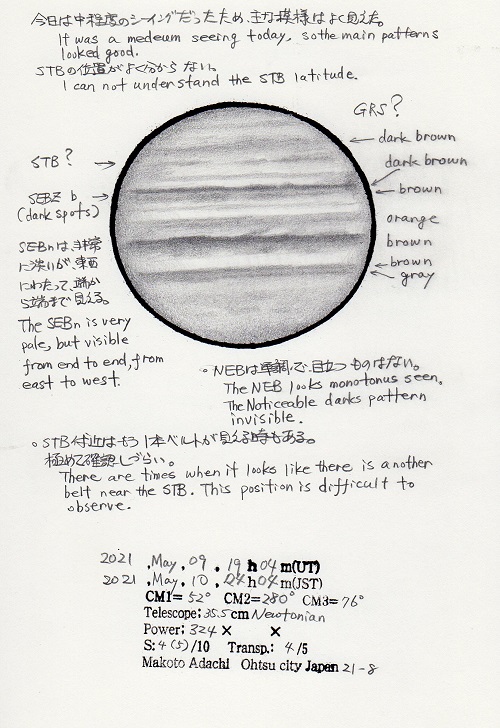 今日は中程度のシーイングだったため、主力模様はよく見えた。
It was a medeum seeing today, so the main patterns
looked good.
STBの位置がよく分からない。
I can not understand the STB latitude.
GRS?
dark brown
STB?
dark brown
SEBZ b
(dark spots)
brown
orange
SEBnは非常
に淡いが、東西
にわたって、端か
ら端まで見える。
brown
brown
gray
The SEBn is very
pale, but visible
from end to end, from
east to west.
。NEBは単調で、目立つものはない。
The NEB looks monotonus seen.
The Noticeable darks pattern
invisible.
。STB付近はもう1本ベルトが見える時もある。
極めて確認しづらい。
There are times when it looks like there is another
belt near the STB. This position is difficult to
observe.
2021 .May. 09 . 19 h 04 m(UT)
2021 .May. 10 . 04 h 04 m(JST)
CM1= 52° CM2= 280° CM3= 76°
Telescope: 35.5 cm Newtonian
Power: 324 × ×
S: 4 (5) /10 Transp.: 4 /5
Makoto Adachi Ohtsu city Japan 21-8